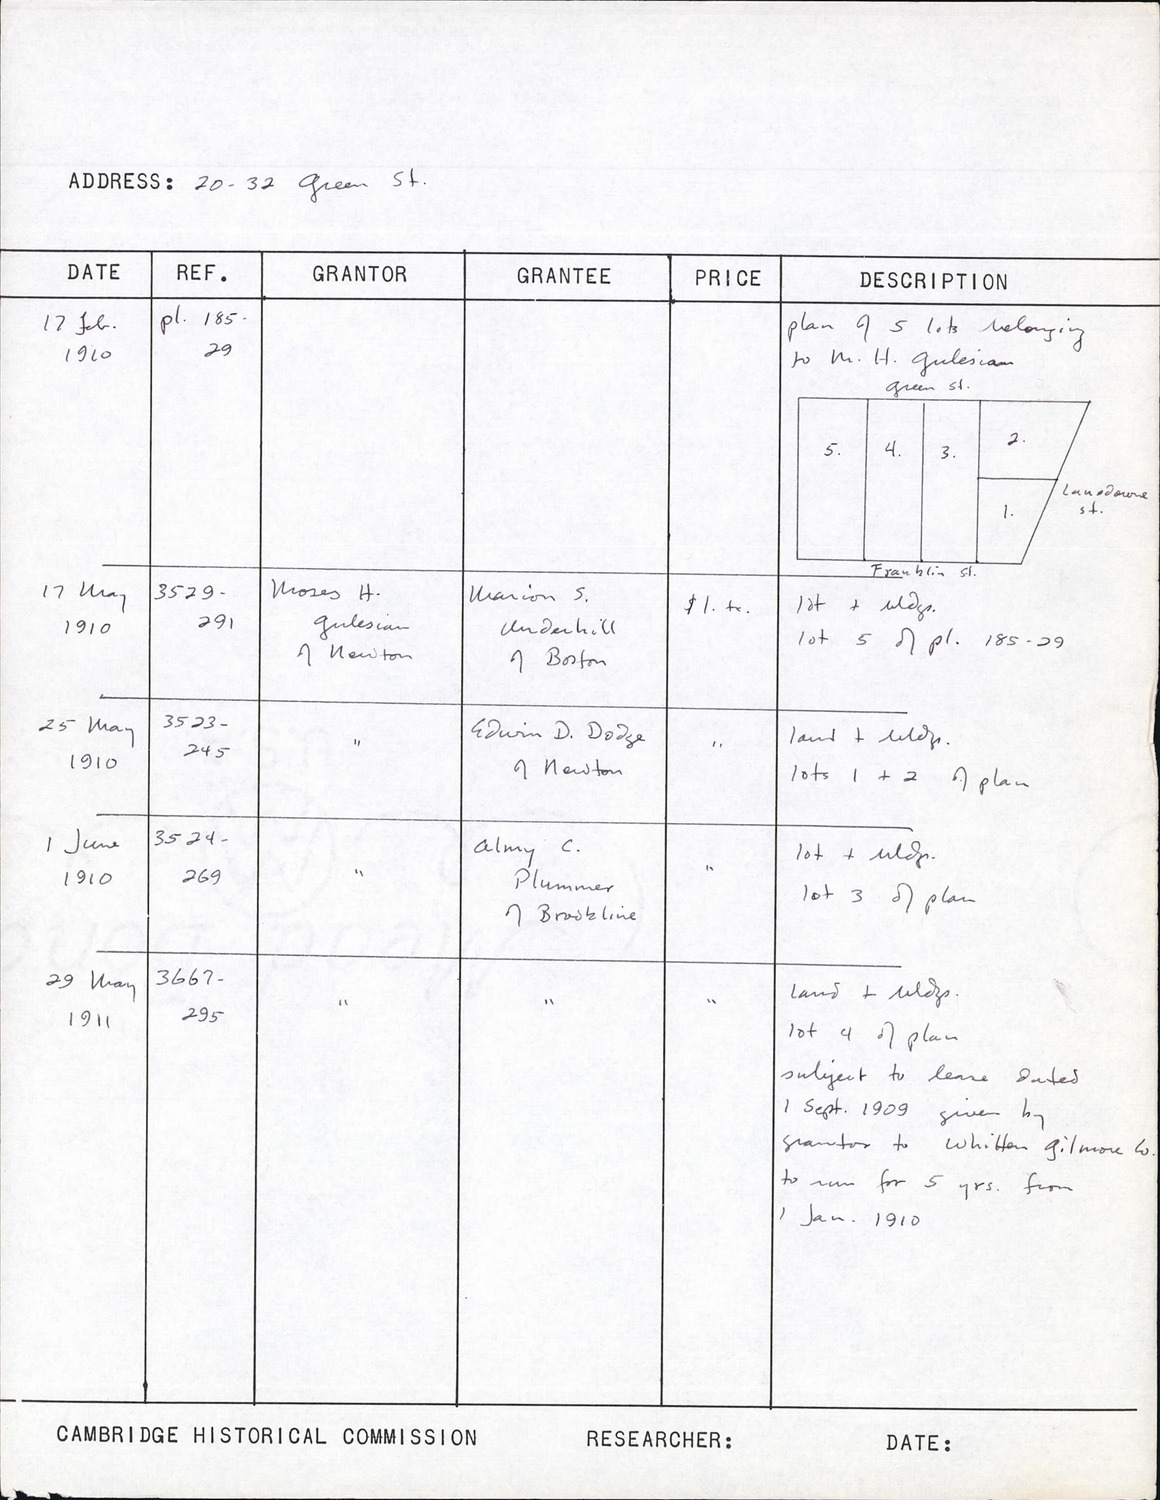 ADDRESS: 20-32 Green St.
DATE REF. GRANTOR GRANTEE PRICE DESCRIPTION
17 Feb.
1910
pl. 185-
29
plan of 5 lots belonging
to M. H. Gulesian
Green St.
5. 4. 3. 2.
1.
Lansdowne
St.
Franklin St.
17 May
1910
3529-
291
Moses H.
Gulesian
of Newton
Marion S.
Underhill
of Boston
$1. tc.
lot + bldgs.
lot 5 of pl. 185-29
25 May
1910
3523-
245
"
Edwin D. Dodge
of Newton
"
land + bldgs.
lots 1 + 2 of plan
1 June
1910
3524-
269
"
Almy C.
Plummer
of Brookline
"
lot + bldgs.
lot 3 of plan
29 May
1911
3667-
295
"
"
"
land + bldgs.
lot 4 of plan
subject to lease dated
1 Sept. 1909 given by
grantor to Whitten Gilmore Co.
to run for 5 yrs. from
1 Jan. 1910
CAMBRIDGE HISTORICAL COMMISSION RESEARCHER: DATE: